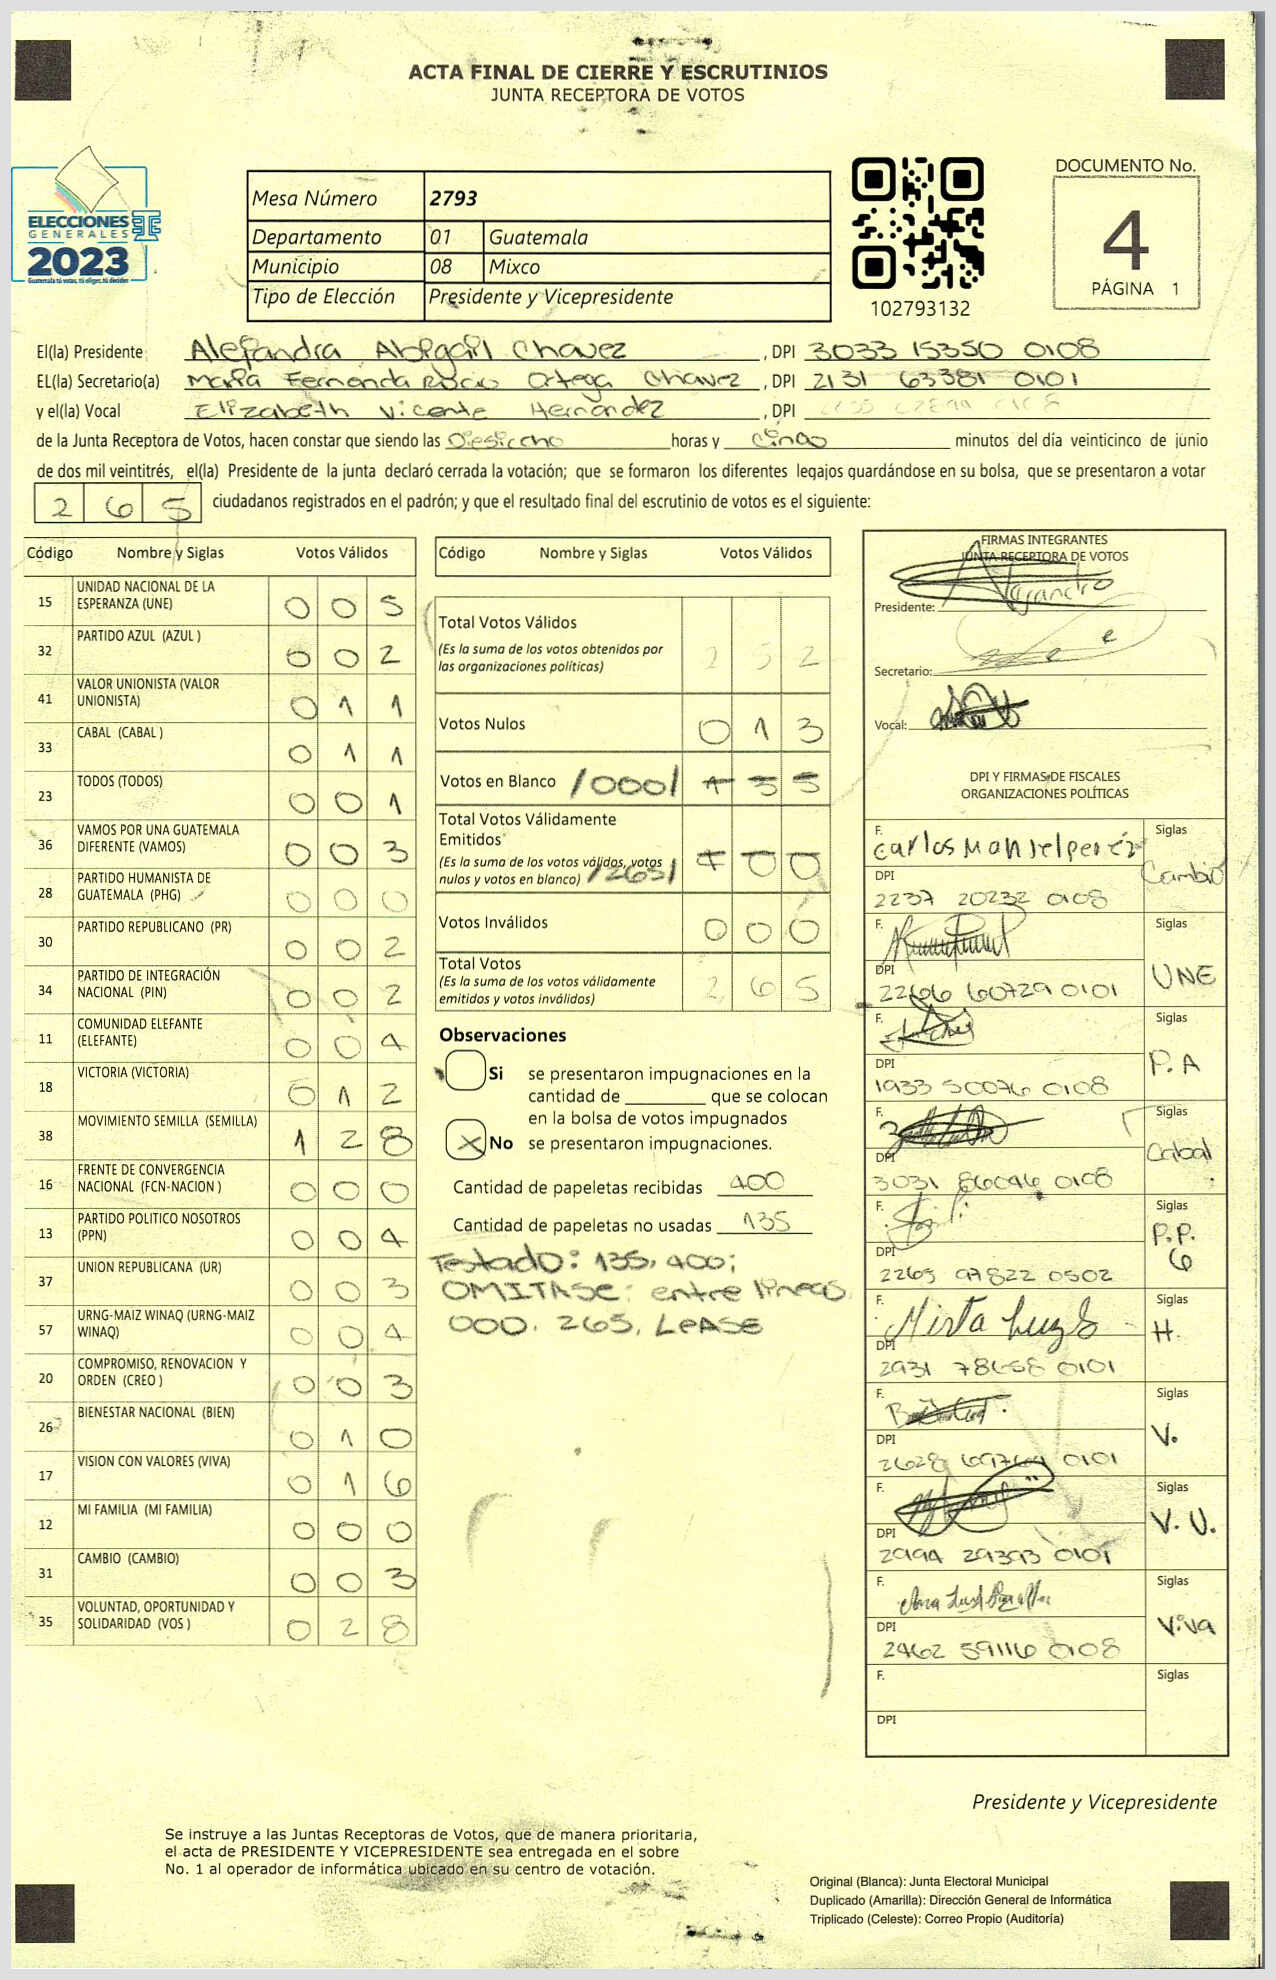 ACTA FINAL DE CIERRE Y ESCRUTINIOS
JUNTA RECEPTORA DE VOTOS
ELECCIONES
GENERALES
2023
Guatemala tú votas, tú eliges, tú decides
Mesa Número 2793
Departamento 01 Guatemala
Municipio 08 Mixco
Tipo de Elección Presidente y Vicepresidente
102793132
DOCUMENTO No.
4
PÁGINA 1
El(la) Presidente Alejandra Abigail Chavez, DPI 3033 15350 0108
EL(la) Secretario(a) Maria Fernanda Rocio Ortega Chavez, DPI 2131 63381 0101
y el(la) Vocal Elizabeth Vicente Hernandez, DPI
de la Junta Receptora de Votos, hacen constar que siendo las Diesiocho horas y Cinco minutos del día veinticinco de junio
de dos mil veintitrés, el(la) Presidente de la junta declaró cerrada la votación; que se formaron los diferentes legajos guardándose en su bolsa, que se presentaron a votar
2 6 5 ciudadanos registrados en el padrón; y que el resultado final del escrutinio de votos es el siguiente:
Código Nombre y Siglas Votos Válidos
15 UNIDAD NACIONAL DE LA ESPERANZA (UNE) 0 0 5
32 PARTIDO AZUL (AZUL ) 0 0 2
41 VALOR UNIONISTA (VALOR UNIONISTA) 0 1 1
33 CABAL (CABAL ) 0 1 1
23 TODOS (TODOS) 0 0 1
36 VAMOS POR UNA GUATEMALA DIFERENTE (VAMOS) 0 0 3
28 PARTIDO HUMANISTA DE GUATEMALA (PHG) 0 0 0
30 PARTIDO REPUBLICANO (PR) 0 0 2
34 PARTIDO DE INTEGRACIÓN NACIONAL (PIN) 0 0 2
11 COMUNIDAD ELEFANTE (ELEFANTE) 0 0 4
18 VICTORIA (VICTORIA) 0 1 2
38 MOVIMIENTO SEMILLA (SEMILLA) 1 2 8
16 FRENTE DE CONVERGENCIA NACIONAL (FCN-NACION ) 0 0 0
13 PARTIDO POLITICO NOSOTROS (PPN) 0 0 4
37 UNION REPUBLICANA (UR) 0 0 3
57 URNG-MAIZ WINAQ (URNG-MAIZ WINAQ) 0 0 4
20 COMPROMISO, RENOVACION Y ORDEN (CREO ) 0 0 3
26 BIENESTAR NACIONAL (BIEN) 0 1 0
17 VISION CON VALORES (VIVA) 0 1 6
12 MI FAMILIA (MI FAMILIA) 0 0 0
31 CAMBIO (CAMBIO) 0 0 3
35 VOLUNTAD, OPORTUNIDAD Y SOLIDARIDAD (VOS ) 0 2 8
Código Nombre y Siglas Votos Válidos
Total Votos Válidos 2 5 2
(Es la suma de los votos obtenidos por
las organizaciones políticas)
Votos Nulos 0 1 3
Votos en Blanco /000/ 1 3 5
Total Votos Válidamente
Emitidos
(Es la suma de los votos válidos, votos
nulos y votos en blanco) /265/ 4 0 0
Votos Inválidos 0 0 0
Total Votos 2 6 5
(Es la suma de los votos válidamente
emitidos y votos inválidos)
Observaciones
Si se presentaron impugnaciones en la
cantidad de ________ que se colocan
en la bolsa de votos impugnados
X No se presentaron impugnaciones.
Cantidad de papeletas recibidas 400
Cantidad de papeletas no usadas 135
Testado: 135, 400;
OMITASE: entre lineas
000. 265, LEASE
FIRMAS INTEGRANTES
JUNTA RECEPTORA DE VOTOS
Presidente:
Secretario:
Vocal:
DPI Y FIRMAS DE FISCALES
ORGANIZACIONES POLÍTICAS
F. Carlos Manuel perez Siglas Cambio
DPI 2237 20232 0108
F. Siglas UNE
DPI 2266 60729 0101
F. Siglas P.A
DPI 1933 50076 0108
F. Siglas Cabal
DPI 3031 86096 0108
F. Siglas P.P. G
DPI 2265 97822 0502
F. Mirta Siglas H.
DPI 2931 78658 0101
F. Siglas V.
DPI 2628 69769 0101
F. Siglas V.U.
DPI 2994 29393 0101
F. Siglas Viva
DPI 2462 59116 0108
F. Siglas
DPI
Presidente y Vicepresidente
Se instruye a las Juntas Receptoras de Votos, que de manera prioritaria,
el acta de PRESIDENTE Y VICEPRESIDENTE sea entregada en el sobre
No. 1 al operador de informática ubicado en su centro de votación.
Original (Blanca): Junta Electoral Municipal
Duplicado (Amarilla): Dirección General de Informática
Triplicado (Celeste): Correo Propio (Auditoría)